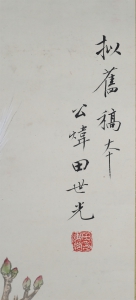 拟舊稿大下
公煒田世光